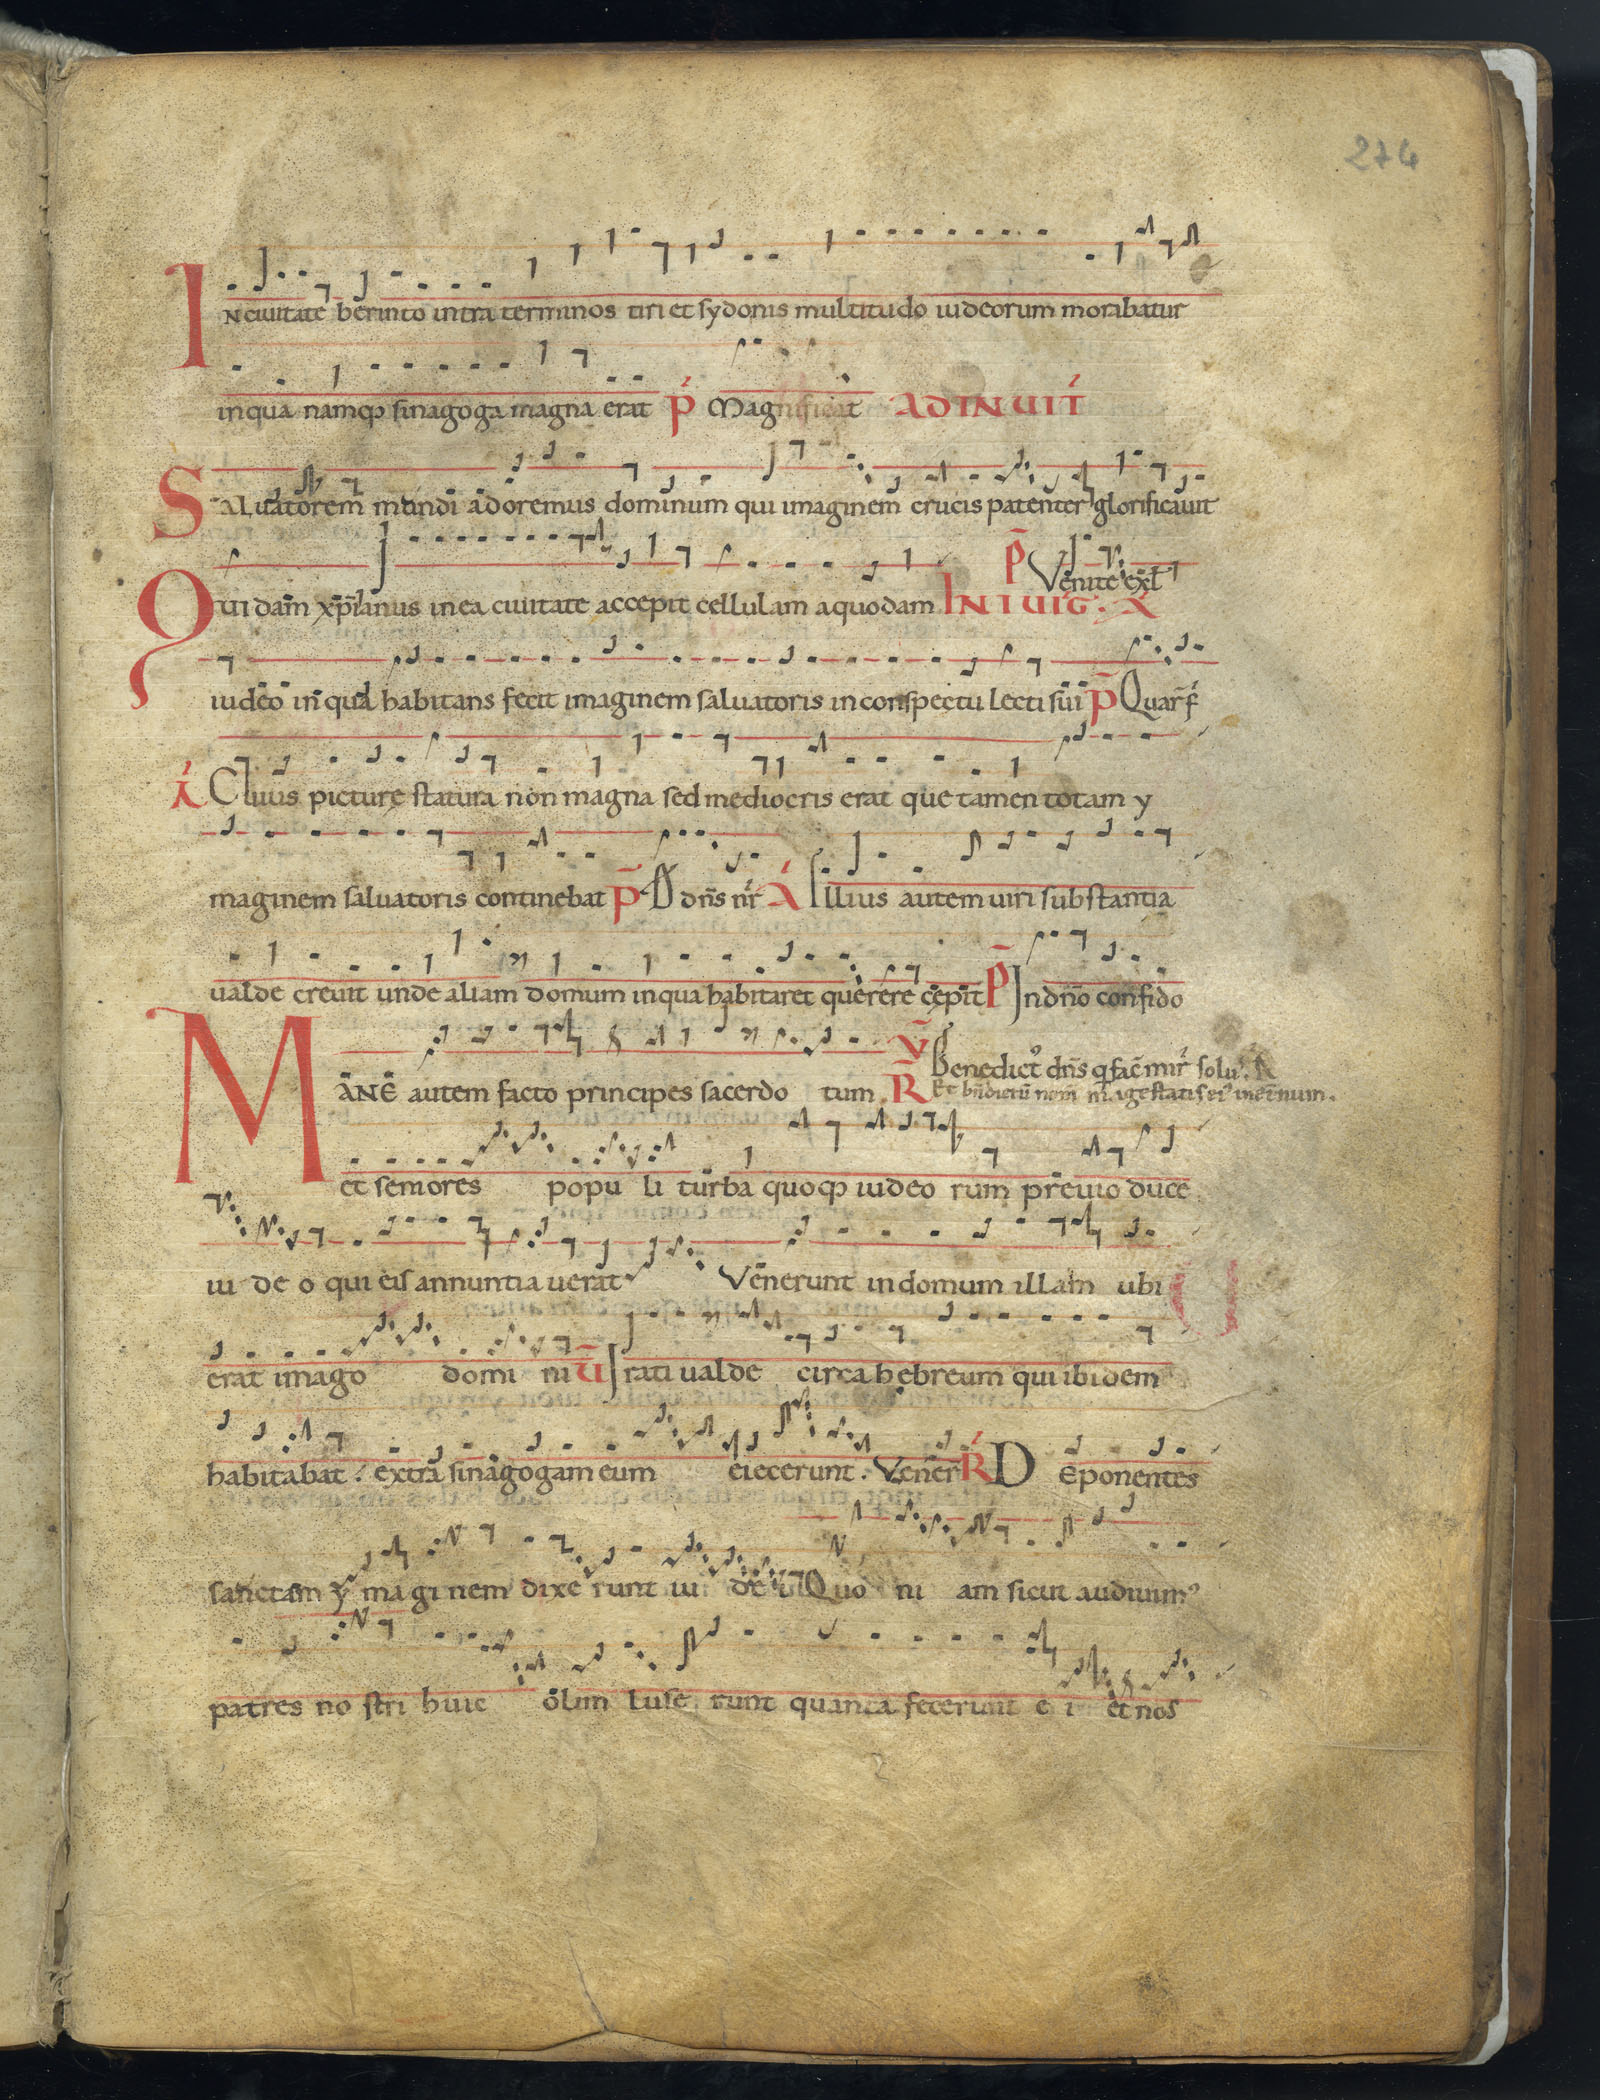 274
INciuitate berinto intra terminos tiri et sydonis multitudo iudeorum morabatur
inqua namq; sinagoga magna erat p̄ Magnificat AD INUIT̄
SALuatorem mundi adoremus dominum qui imaginem crucis patenter glorificauit
p̄ Venite exl̄t
QUIdam xp̄ianus inea ciuitate accepit cellulam aquodam IN I UIG. A
iudeo in qua habitans fecit imaginem saluatoris inconspectu lecti sui p̄ Quar̄ f̄
A CUIus picturę statura non magna sed mediocris erat que tamen totam y
maginem saluatoris continebat p̄ D dn̄s nr̄ A Illius autem uiri substantia
ualde creuit unde aliam domum inqua habitaret querere cępit p̄ Indn̄o confido
V̄ Benedict᾿ dn̄s q fac̄ mir̄ solu᾿. R
MANE autem facto principes sacerdo tum R̄ Et bn̄dictū nom̄ magestatis ei᾿ inet̄num.
et seniores popu li turba quoq; iudeo rum preuio duce
iu de o qui eis annuntia uerat Venerunt indomum illam ubi
erat imago domi ni V̄ Irati ualde circa hebreum qui ibidem
habitabat. extra sinagogam eum eiecerunt. Vener R̄ DEponentes
sanctam y ma gi nem dixe runt iu de i Quo ni am sicut audiuim᾿
patres no stri huic olim luse runt quanta fecerunt e i et nos